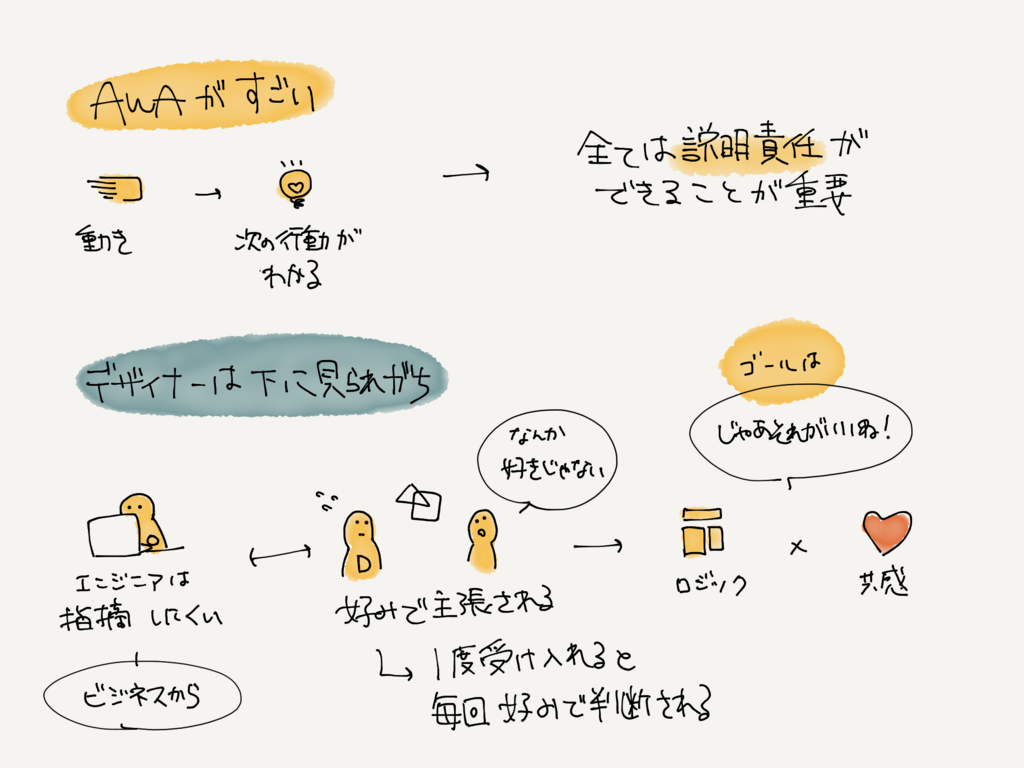 AWAがすごい
動き
次の行動が
わかる
全ては説明責任が
できることが重要
デザイナーは下に見られがち
エンジニアは
指摘しにくい
ビジネスから
なんか
好きじゃない
D
好みで主張される
1度受け入れると
毎回好みで判断される
ゴールは
じゃあそれがいいね!
ロジック
×
共感